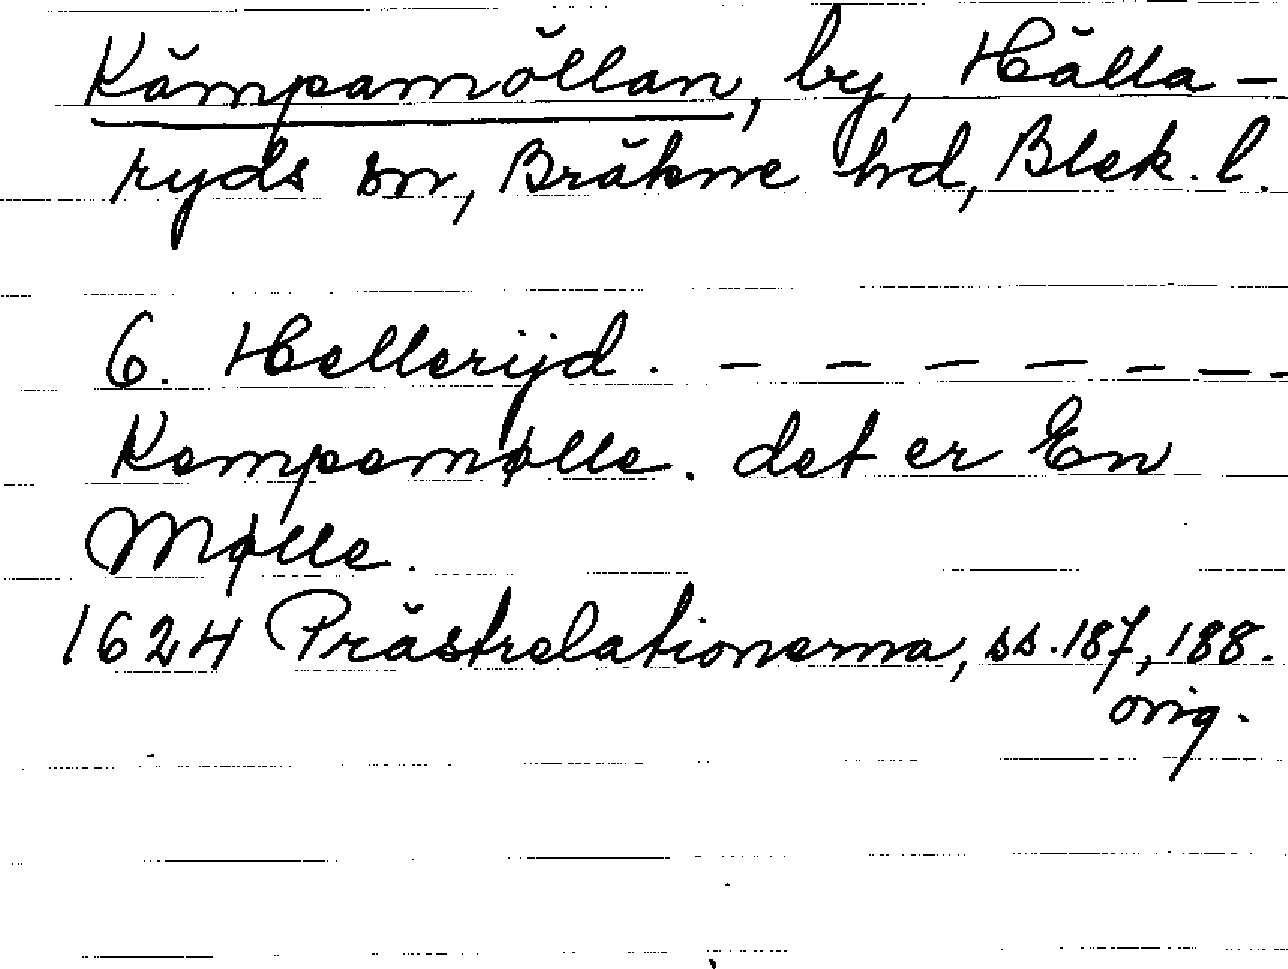 Kämpamöllan, by, Hälla-
ryds sn, Bräkne hd, Blek. l.
6. Hellerijd. - - - - - - -
Kempemølle. det er En
Mølle.
1624 Prästrelationerna, ss. 187, 188.
orig.